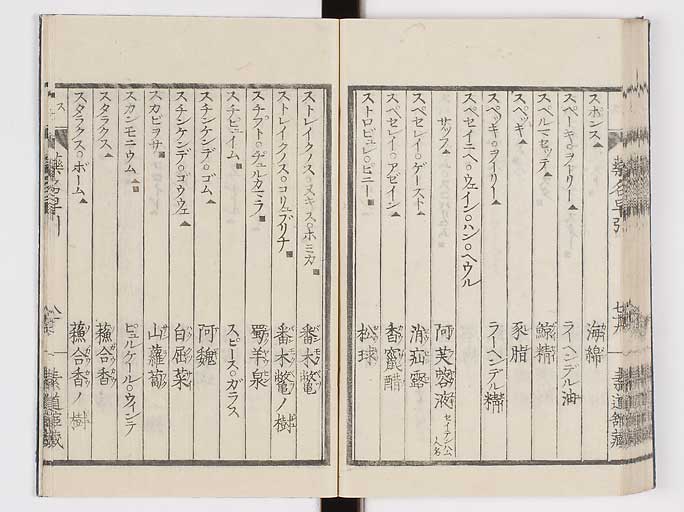 スポンス▲ 海綿
スペーキ○ヲトリー▲ ラーヘンデル油
スペルマセッテ▲ 鯨精
スペッキ▲ 豕脂
スペッキ○ヲイリー▲ ラーヘンデル精
スペセイニヘ○ウェイン○ハン○ヘウル
サッフ▲ 阿芙蓉液
スペセレイ○ゲースト▲
スペセレイ○アゼイン 香竄醋
ストロビュレ○ピニー■ 松球
ストレイクノス○ヌキス○ホミカ■ 番木鼈
ストレイクノス○コリュブリナ■ 番木鼈ノ樹
スチフト○ヂュルカマラ■ 蜀羊泉
スチビュイム■ スピース○ガラス
スチンケンデ○ゴム▲ 阿魏
スチンケンデ○ゴウウェ▲ 白屈菜
スカビヲサ■ 山蘿蔔
スカンモニウム■ ピュルケール○ウィンデ
スタラクス▲ 蘓合香
スタラクス○ボーム▲ 蘓合香ノ樹
ス
藥名早引